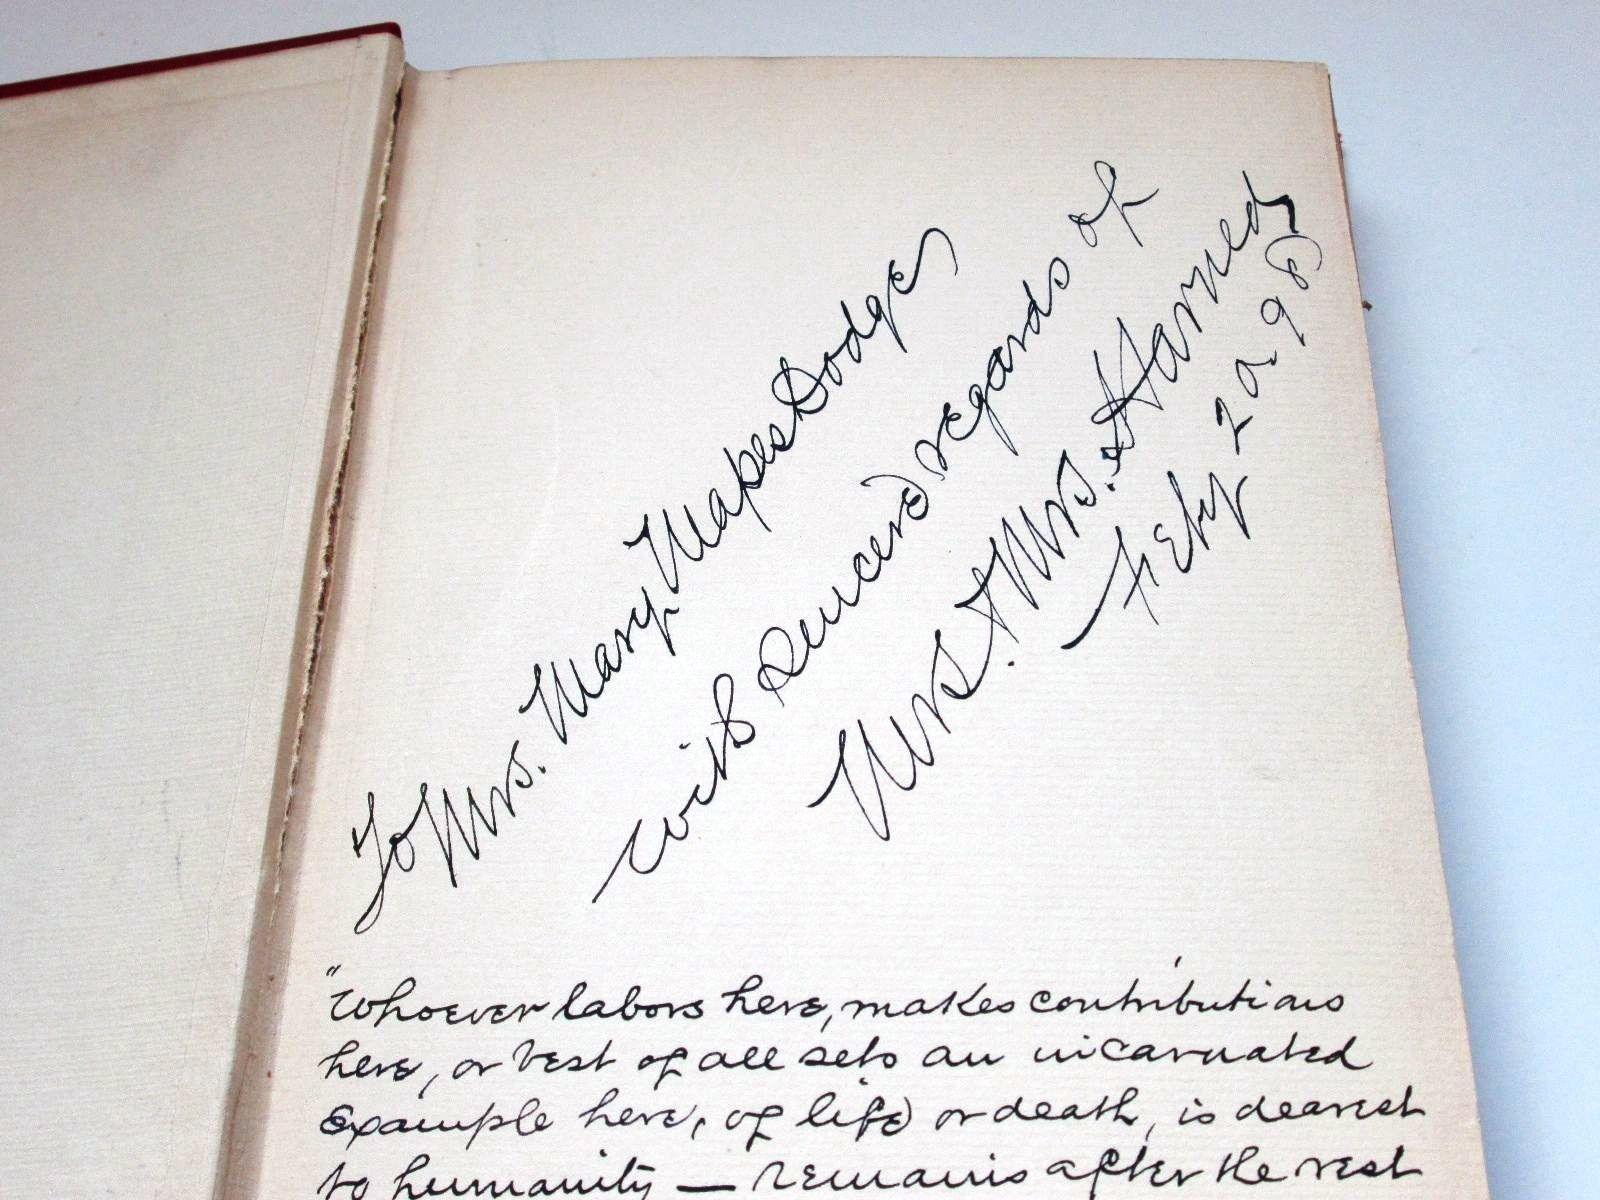 To Mrs. Mary Mapes Dodge,
with sincere regards of
Mrs. & Mrs. Harned
Feby 20, 98
"Whoever labors here, makes contributions
here, or best of all sets an incarnated
example here, of life or death, is dearest
to humanity — remains after the rest